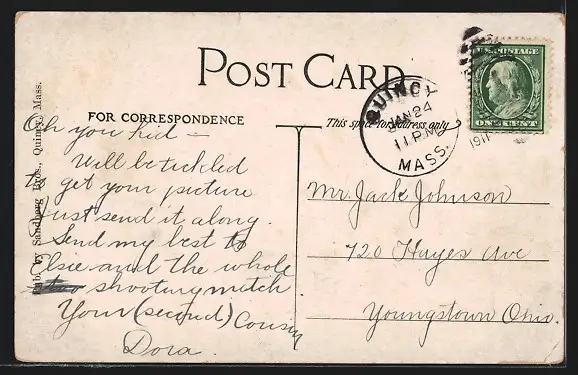 POST CARD
FOR CORRESPONDENCE
This space for address only
Pub. by Sandberg Bros., Quincy, Mass.
QUINCY
JAN 24
11 PM
1911
MASS.
U.S. POSTAGE
ONE CENT
Oh you kid –
Will be tickled
to get your picture
Just send it along.
Send my best to
Elsie and the whole
shooting match
Your (second) Cousin
Dora.
Mr. Jack Johnson
720 Hayes Ave
Youngstown Ohio.